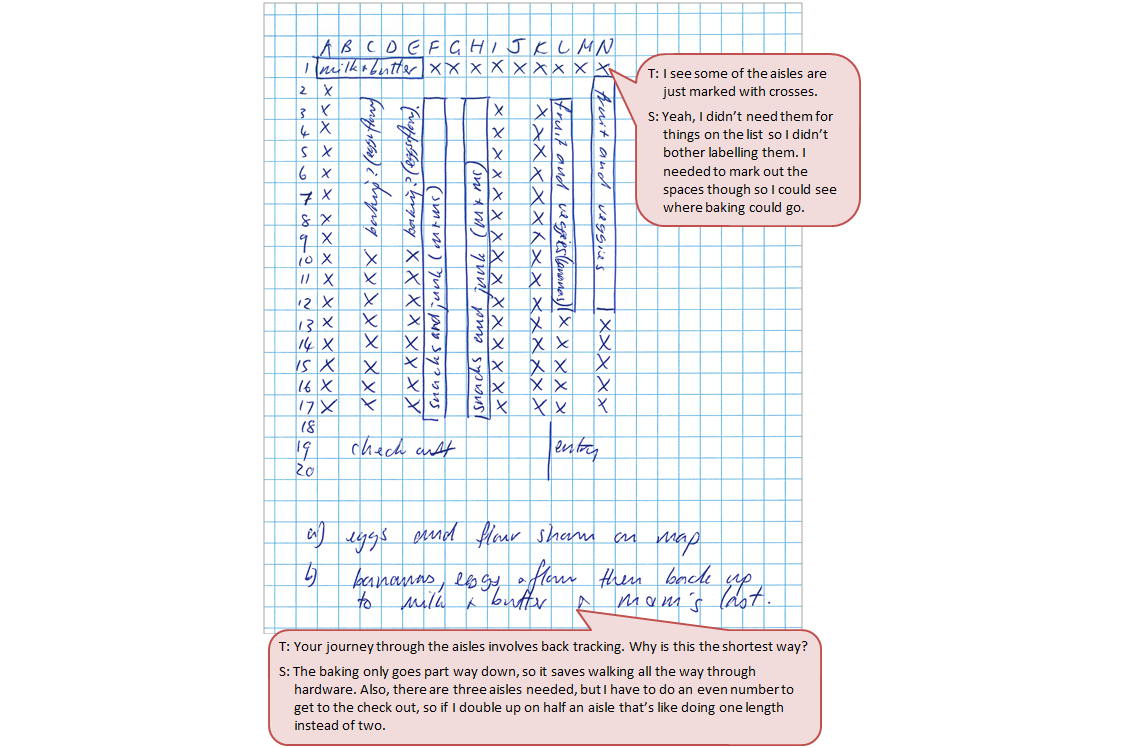 A B C D E F G H I J K L M N
1 milk + butter X X X X X X X X X
2 X
3 X X X
4 X X X
5 X X X
6 X X X
7 X X X
8 X X X
9 X X X
10 X X X X X
11 X X X X X
12 X X X X X
13 X X X X X X X
14 X X X X X X X
15 X X X X X X X
16 X X X X X X X
17 X X X X X X X
18
19 check out entry
20
baking? (eggs flour)
baking? (eggs flour)
snacks and junk (m+ms)
snacks and junk (m+ms)
fruit and veggies (bananas)
fruit and veggies
T: I see some of the aisles are
just marked with crosses.
S: Yeah, I didn’t need them for
things on the list so I didn’t
bother labelling them. I
needed to mark out the
spaces though so I could see
where baking could go.
a) eggs and flour shown on map
b) bananas, eggs + flour then back up
to milk + butter + m+m's last.
T: Your journey through the aisles involves back tracking. Why is this the shortest way?
S: The baking only goes part way down, so it saves walking all the way through
hardware. Also, there are three aisles needed, but I have to do an even number to
get to the check out, so if I double up on half an aisle that’s like doing one length
instead of two.